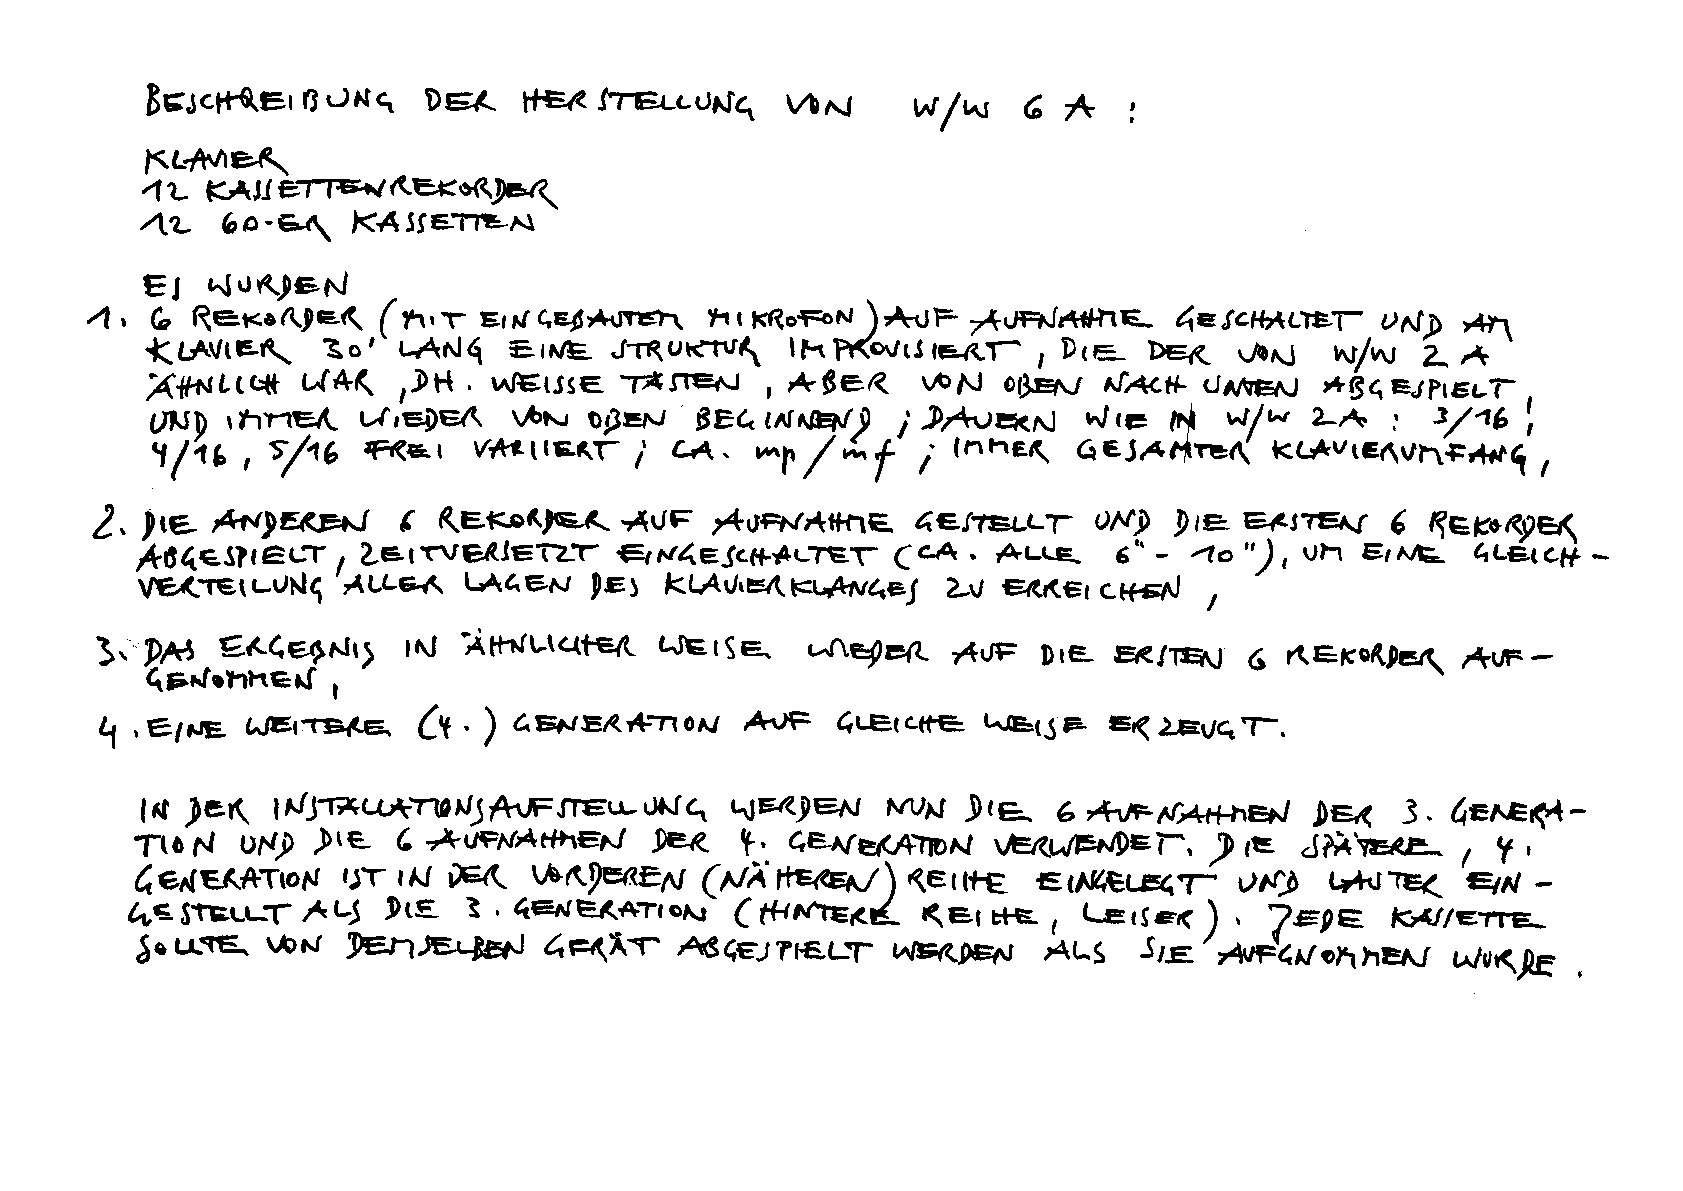 BESCHREIBUNG DER HERSTELLUNG VON W/W 6 A :
KLAVIER
12 KASSETTENREKORDER
12 60-ER KASSETTEN
ES WURDEN
1. 6 REKORDER (MIT EINGEBAUTEM MIKROFON) AUF AUFNAHME GESCHALTET UND AM
KLAVIER 30' LANG EINE STRUKTUR IMPROVISIERT, DIE DER VON W/W 2 A
ÄHNLICH WAR, DH. WEISSE TASTEN, ABER VON OBEN NACH UNTEN ABGESPIELT,
UND IMMER WIEDER VON OBEN BEGINNEND ; DAUERN WIE IN W/W 2A : 3/16,
4/16, 5/16 FREI VARIIERT ; CA. mp/mf ; IMMER GESAMTER KLAVIERUMFANG,
2. DIE ANDEREN 6 REKORDER AUF AUFNAHME GESTELLT UND DIE ERSTEN 6 REKORDER
ABGESPIELT, ZEITVERSETZT EINGESCHALTET (CA. ALLE 6" - 10"), UM EINE GLEICH-
VERTEILUNG ALLER LAGEN DES KLAVIERKLANGES ZU ERREICHEN,
3. DAS ERGEBNIS IN ÄHNLICHER WEISE WIEDER AUF DIE ERSTEN 6 REKORDER AUF-
GENOMMEN,
4. EINE WEITERE (4.) GENERATION AUF GLEICHE WEISE ERZEUGT.
IN DER INSTALLATIONSAUFSTELLUNG WERDEN NUN DIE 6 AUFNAHMEN DER 3. GENERA-
TION UND DIE 6 AUFNAHMEN DER 4. GENERATION VERWENDET. DIE SPÄTERE, 4.
GENERATION IST IN DER VORDEREN (NÄHEREN) REIHE EINGELEGT UND LAUTER EIN-
GESTELLT ALS DIE 3. GENERATION (HINTERE REIHE, LEISER). JEDE KASSETTE
SOLLTE VON DEMSELBEN GERÄT ABGESPIELT WERDEN ALS SIE AUFGNOMMEN WURDE.